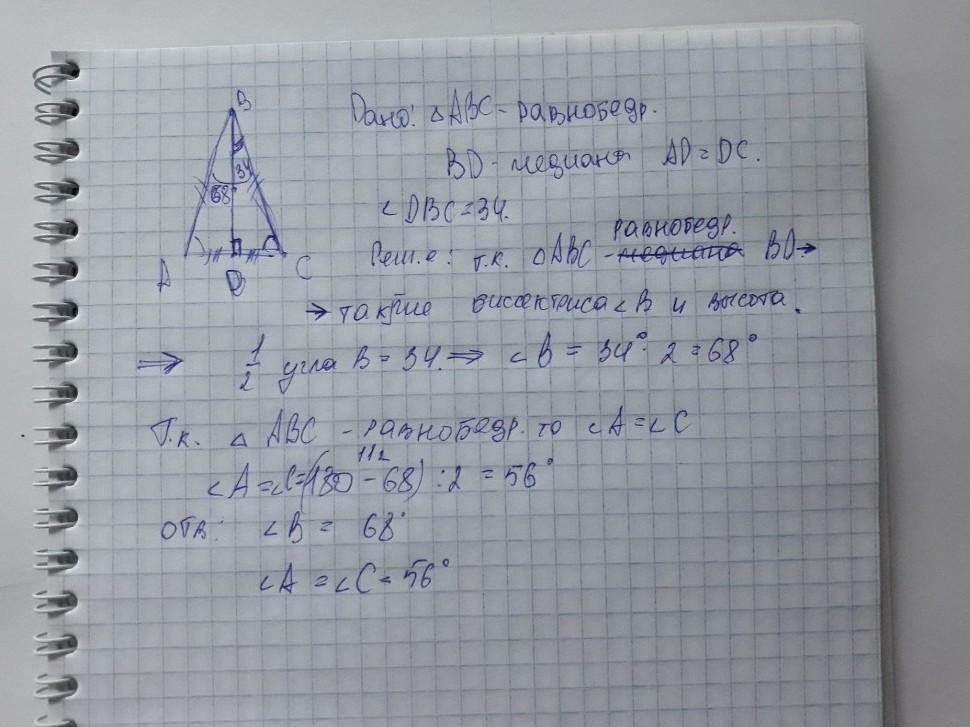 B
34
68
A
D
C
Дано: △ABC - равнобедр.
BD - медиана AD = DC.
∠DBC = 34.
равнобедр.
Реш.е: т.к. △ABC - медиана BD →
→ также биссектриса ∠B и высота.
⇒ 1/2 угла B = 34. ⇒ ∠B = 34° · 2 = 68°
Т.к. △ ABC - равнобедр. то ∠A = ∠C
112
∠A = ∠C = (180 - 68) : 2 = 56°
отв: ∠B = 68°
∠A = ∠C = 56°